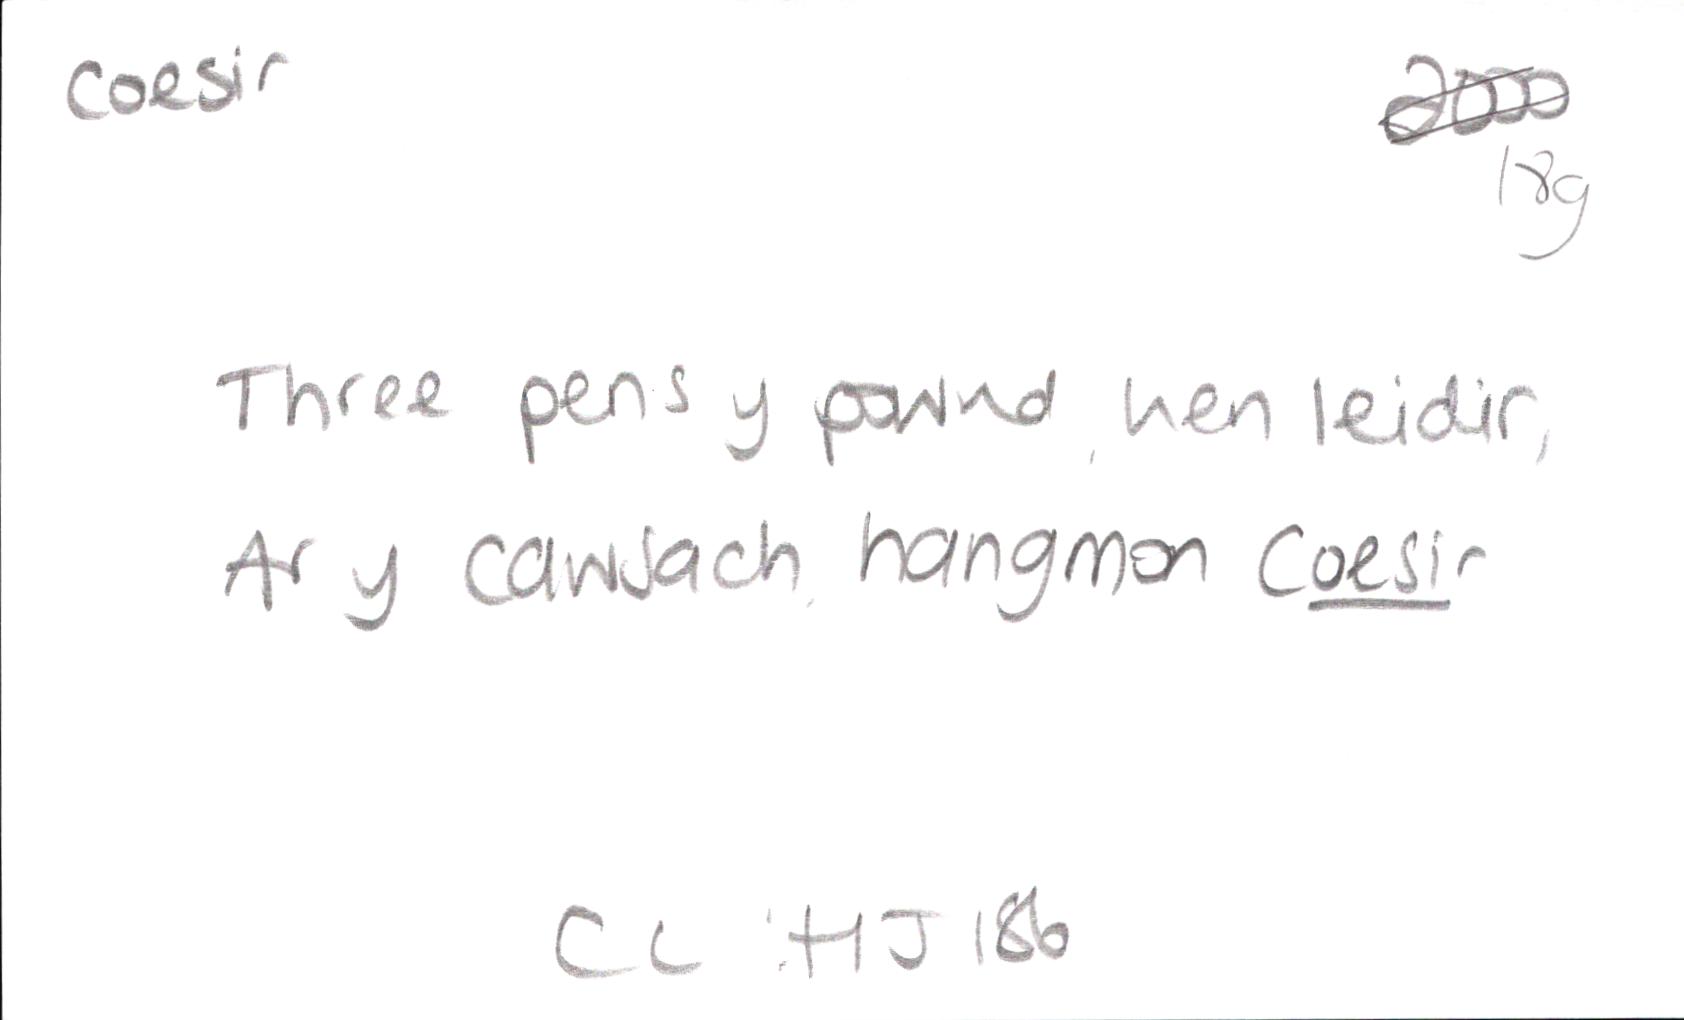 Coesir
2000
18g
Three pens y pownd, hen leidir,
Ar y cawsach, hangmon Coesir
CC :HJ 186